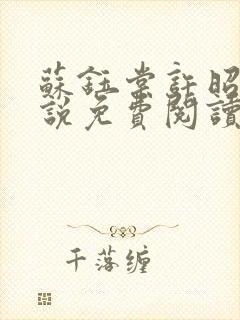 蘇鈺棠許昭
說免費閱讀
千落缠